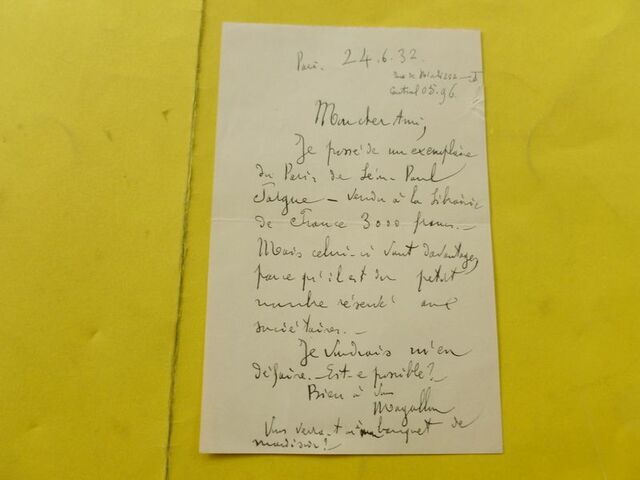 Paris. 24.6.32.
rue de
Central 05.96
Mon cher Ami,
Je possède un exemplaire
du Paris de Léon-Paul
Fargue – vendu à la Librairie
de France 3000 francs. –
Mais celui-ci vaut davantage,
parce qu'il est du petit
nombre réservé aux
sociétaires. –
Je voudrais m'en
défaire. – Est-ce possible?
Bien à vous
Magallon
Vous verra-t-on au banquet de
mardi soir?